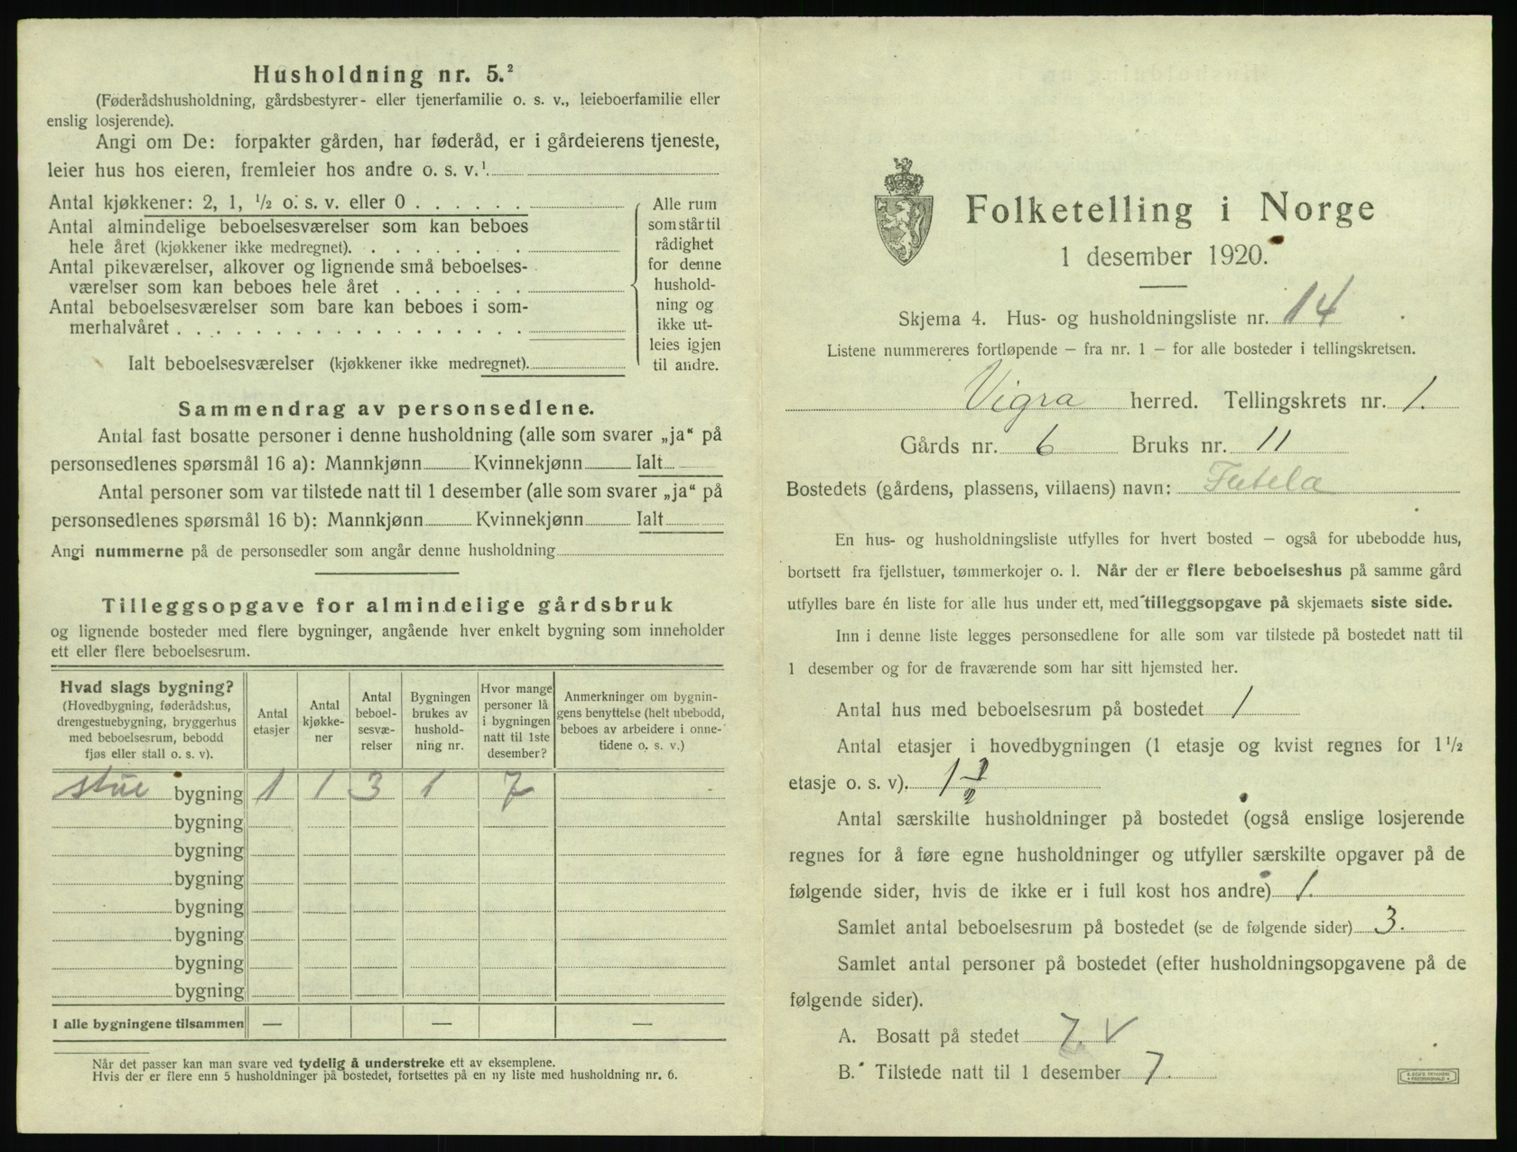 Husholdning nr. 5.²
(Føderådshusholdning, gårdsbestyrer- eller tjenerfamilie o. s. v., leieboerfamilie eller
enslig losjerende).
Angi om De: forpakter gården, har føderåd, er i gårdeierens tjeneste,
leier hus hos eieren, fremleier hos andre o. s. v.¹
Antal kjøkkener: 2, 1, ½ o. s. v. eller 0 . . . . . .
Antal almindelige beboelsesværelser som kan beboes
hele året (kjøkkener ikke medregnet). . . . . . . . .
Antal pikeværelser, alkover og lignende små beboelses-
værelser som kan beboes hele året . . . . . . .
Antal beboelsesværelser som bare kan beboes i som-
merhalvåret . . . . . . . . . . . . . . . . . .
Ialt beboelsesværelser (kjøkkener ikke medregnet).
Alle rum
som står til
rådighet
for denne
hushold-
ning og
ikke ut-
leies igjen
til andre.
Sammendrag av personsedlene.
Antal fast bosatte personer i denne husholdning (alle som svarer „ja“ på
personsedlenes spørsmål 16 a): Mannkjønn Kvinnekjønn Ialt
Antal personer som var tilstede natt til 1 desember (alle som svarer „ja“ på
personsedlenes spørsmål 16 b): Mannkjønn Kvinnekjønn Ialt
Angi nummerne på de personsedler som angår denne husholdning
Tilleggsopgave for almindelige gårdsbruk
og lignende bosteder med flere bygninger, angående hver enkelt bygning som inneholder
ett eller flere beboelsesrum.
Hvad slags bygning?
(Hovedbygning, føderådshus,
drengestuebygning, bryggerhus
med beboelsesrum, bebodd
fjøs eller stall o. s. v).
Antal
etasjer
Antal
kjøkke-
ner
Antal
beboel-
sesvæ-
relser
Bygningen
brukes av
hushold-
ning nr.
Hvor mange
personer lå
i bygningen
natt til 1ste
desember?
Anmerkninger om bygnin-
gens benyttelse (helt ubebodd,
beboes av arbeidere i onne-
tidene o. s. v.)
stue bygning 1 1 3 1 7
bygning
bygning
bygning
bygning
bygning
bygning
bygning
I alle bygningene tilsammen — — —
Når det passer kan man svare ved tydelig å understreke ett av eksemplene.
Hvis der er flere enn 5 husholdninger på bostedet, fortsettes på en ny liste med husholdning nr. 6.
Folketelling i Norge
1 desember 1920.
Skjema 4. Hus- og husholdningsliste nr. 14
Listene nummereres fortløpende — fra nr. 1 — for alle bosteder i tellingskretsen.
Vigra herred. Tellingskrets nr. 1.
Gårds nr. 6 Bruks nr. 11
Bostedets (gårdens, plassens, villaens) navn:
En hus- og husholdningsliste utfylles for hvert bosted — også for ubebodde hus,
bortsett fra fjellstuer, tømmerkojer o. l. Når der er flere beboelseshus på samme gård
utfylles bare én liste for alle hus under ett, med tilleggsopgave på skjemaets siste side.
Inn i denne liste legges personsedlene for alle som var tilstede på bostedet natt til
1 desember og for de fraværende som har sitt hjemsted her.
Antal hus med beboelsesrum på bostedet 1
Antal etasjer i hovedbygningen (1 etasje og kvist regnes for 1½
etasje o. s. v). 1 ½
Antal særskilte husholdninger på bostedet (også enslige losjerende
regnes for å føre egne husholdninger og utfyller særskilte opgaver på de
følgende sider, hvis de ikke er i full kost hos andre) 1.
Samlet antal beboelsesrum på bostedet (se de følgende sider) 3.
Samlet antal personer på bostedet (efter husholdningsopgavene på de
følgende sider).
A. Bosatt på stedet 7. V
B. Tilstede natt til 1 desember 7.